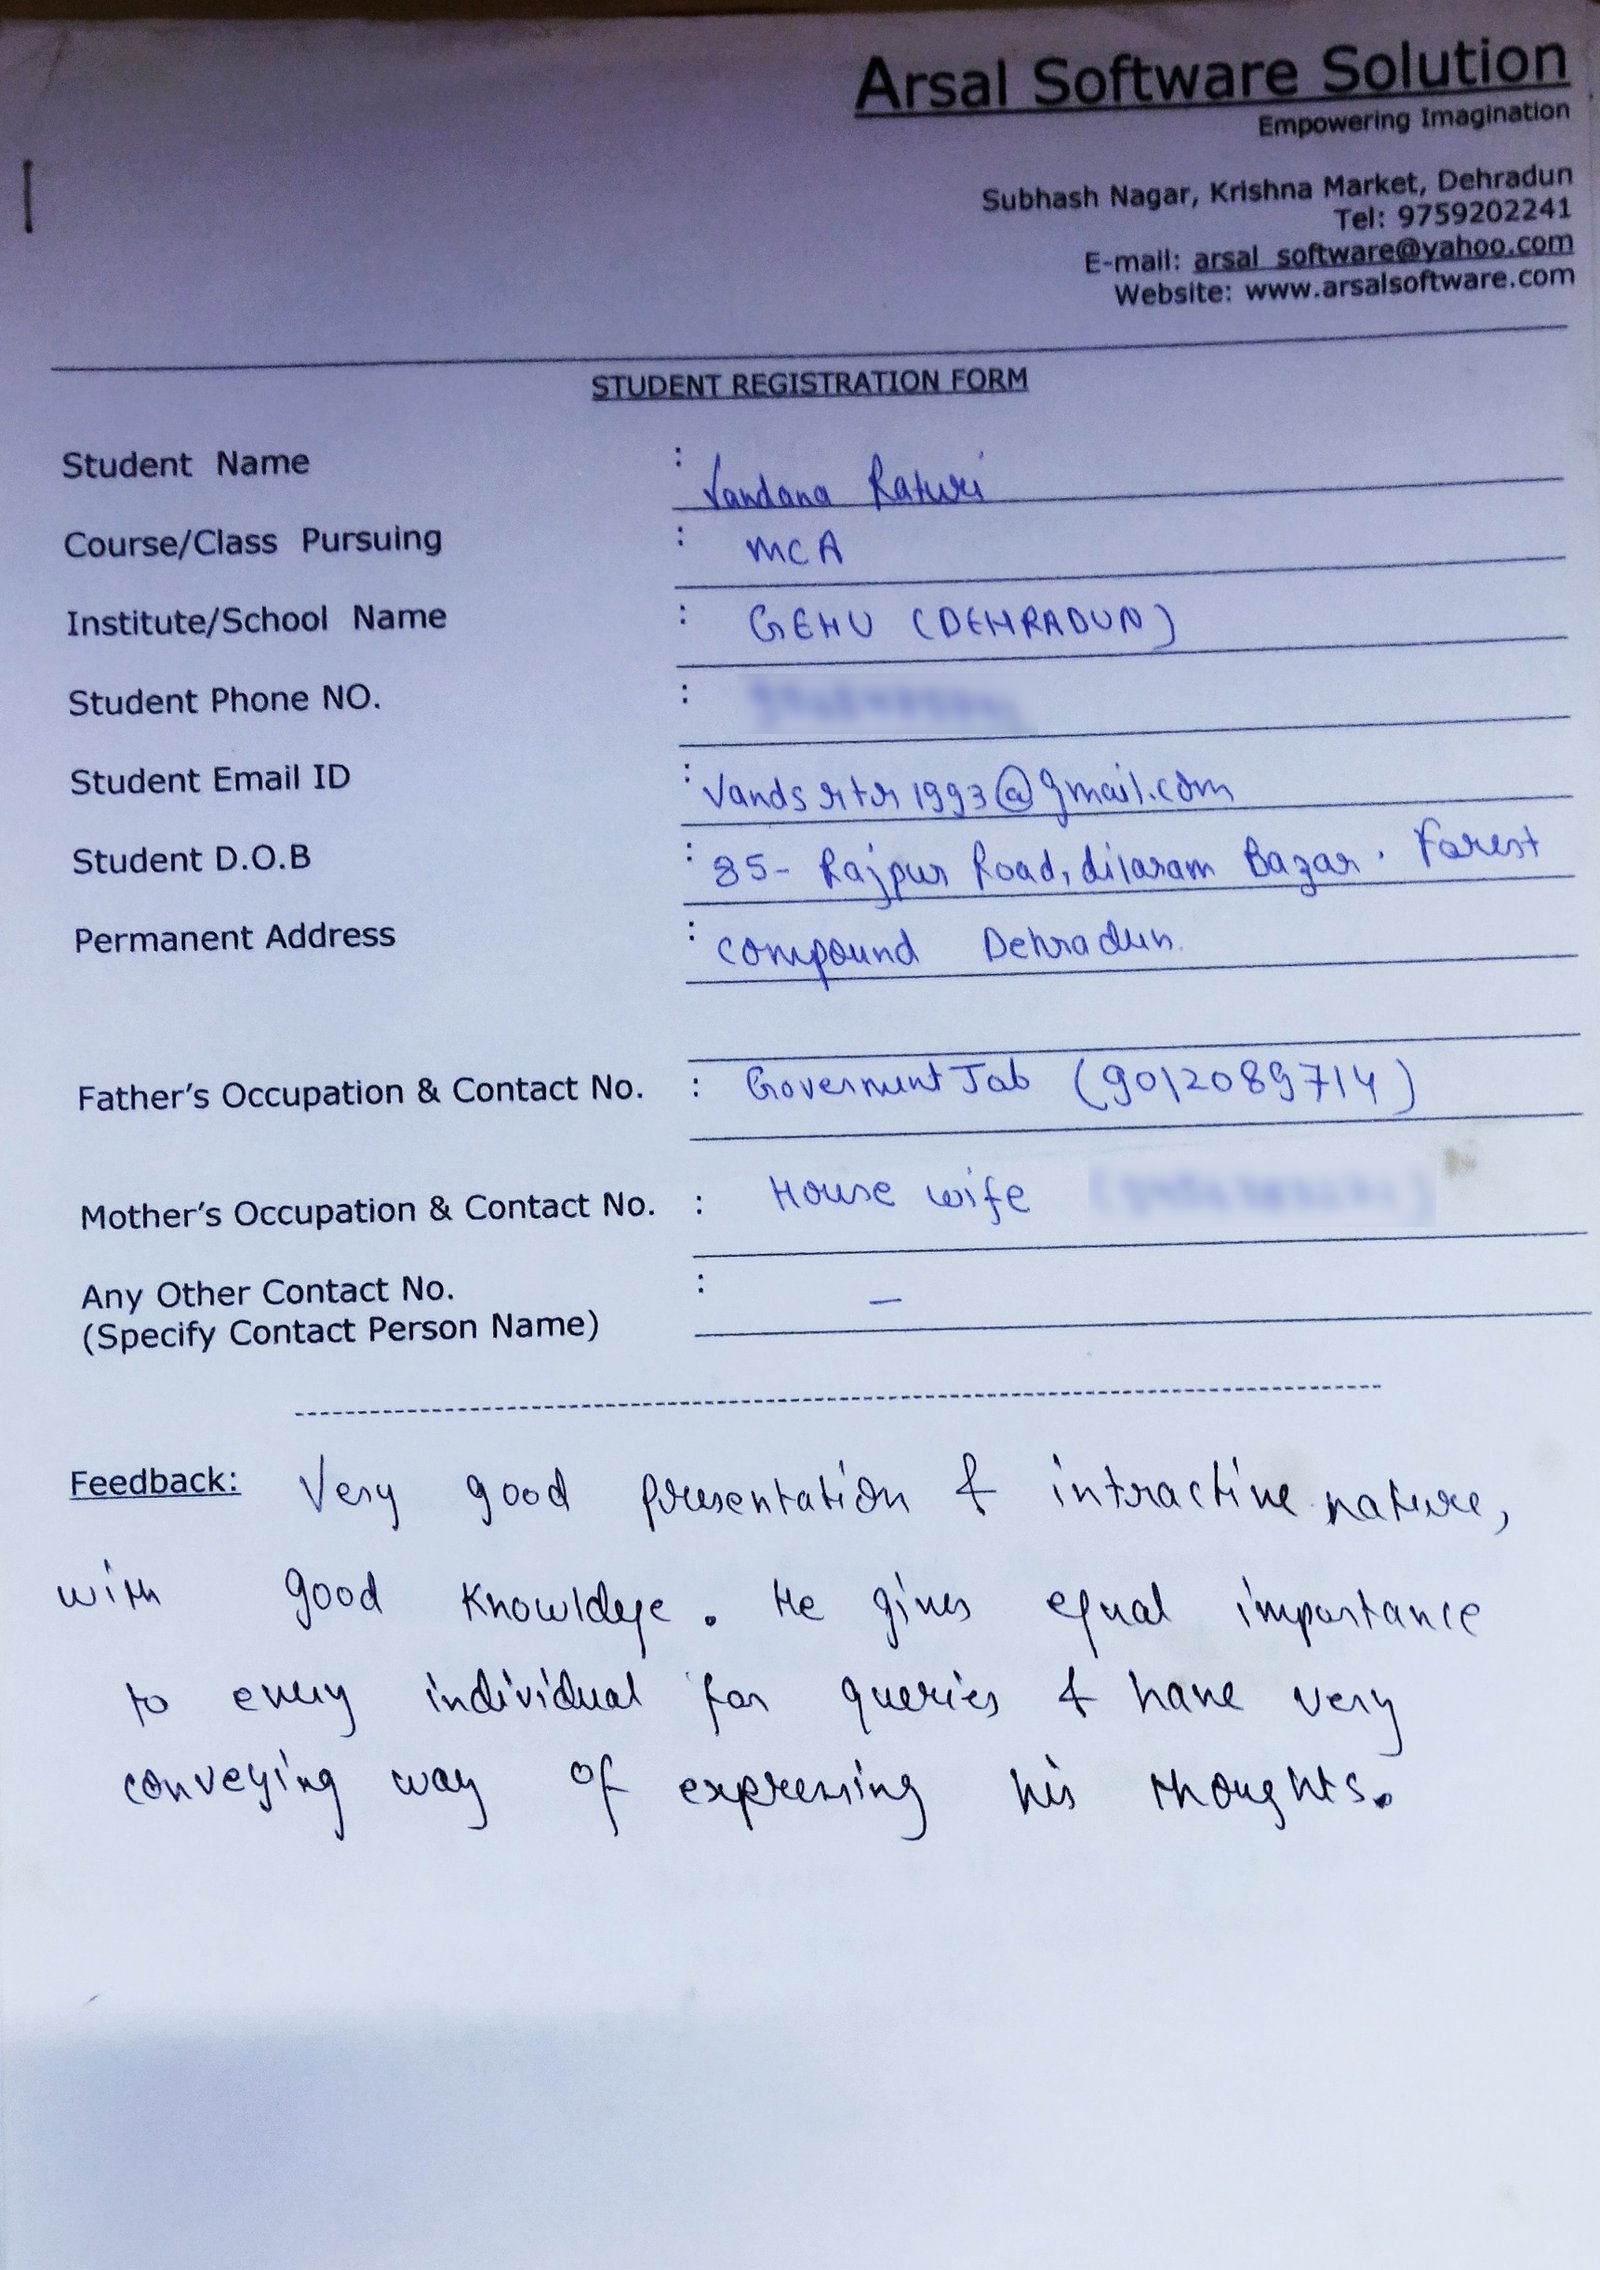 Arsal Software Solution
Empowering Imagination
Subhash Nagar, Krishna Market, Dehradun
Tel: 9759202241
E-mail: arsal_software@yahoo.com
Website: www.arsalsoftware.com
STUDENT REGISTRATION FORM
Student Name : Vandana Raturi
Course/Class Pursuing : MCA
Institute/School Name : GEHU (DEHRADUN)
Student Phone NO. :
Student Email ID : Vandsrtr1993@gmail.com
Student D.O.B : 85- Rajpur Road, dilaram Bazar. Forest
Permanent Address : compound Dehradun.
Father's Occupation & Contact No. : Goverment Job (9012089714)
Mother's Occupation & Contact No. : House wife
Any Other Contact No. : —
(Specify Contact Person Name)
Feedback: Very good presentation & intractive nature,
with good Knowldege. He gives equal importance
to every individual for queries & have very
conveying way of expressing his thoughts.